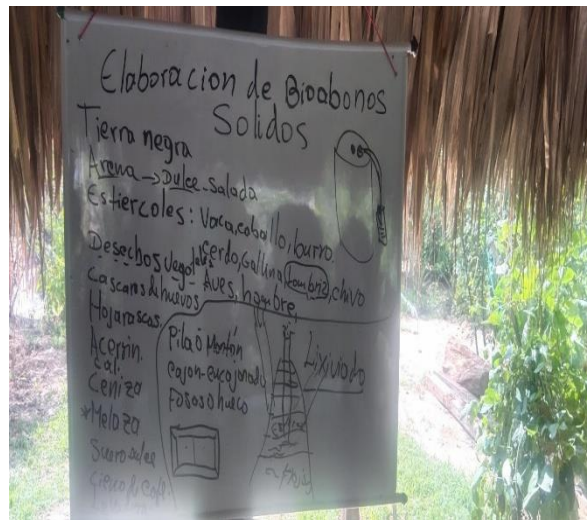 Elaboracion de Bioabonos
Solidos
Tierra negra
Arena → Dulce - Salada
Estiercoles: Vaca, caballo, burro.
Cerdo, Gallina, Lombriz, chivo
Aves, hombre,
Desechos Vegetales
Cascaras de huevos
Hojarascas
Acerrin.
Cal.
Ceniza
*Meloza
Suero dulce
Pila ó Montón
Cajon-encajonado
Fosos ó hueco
Lixiviado